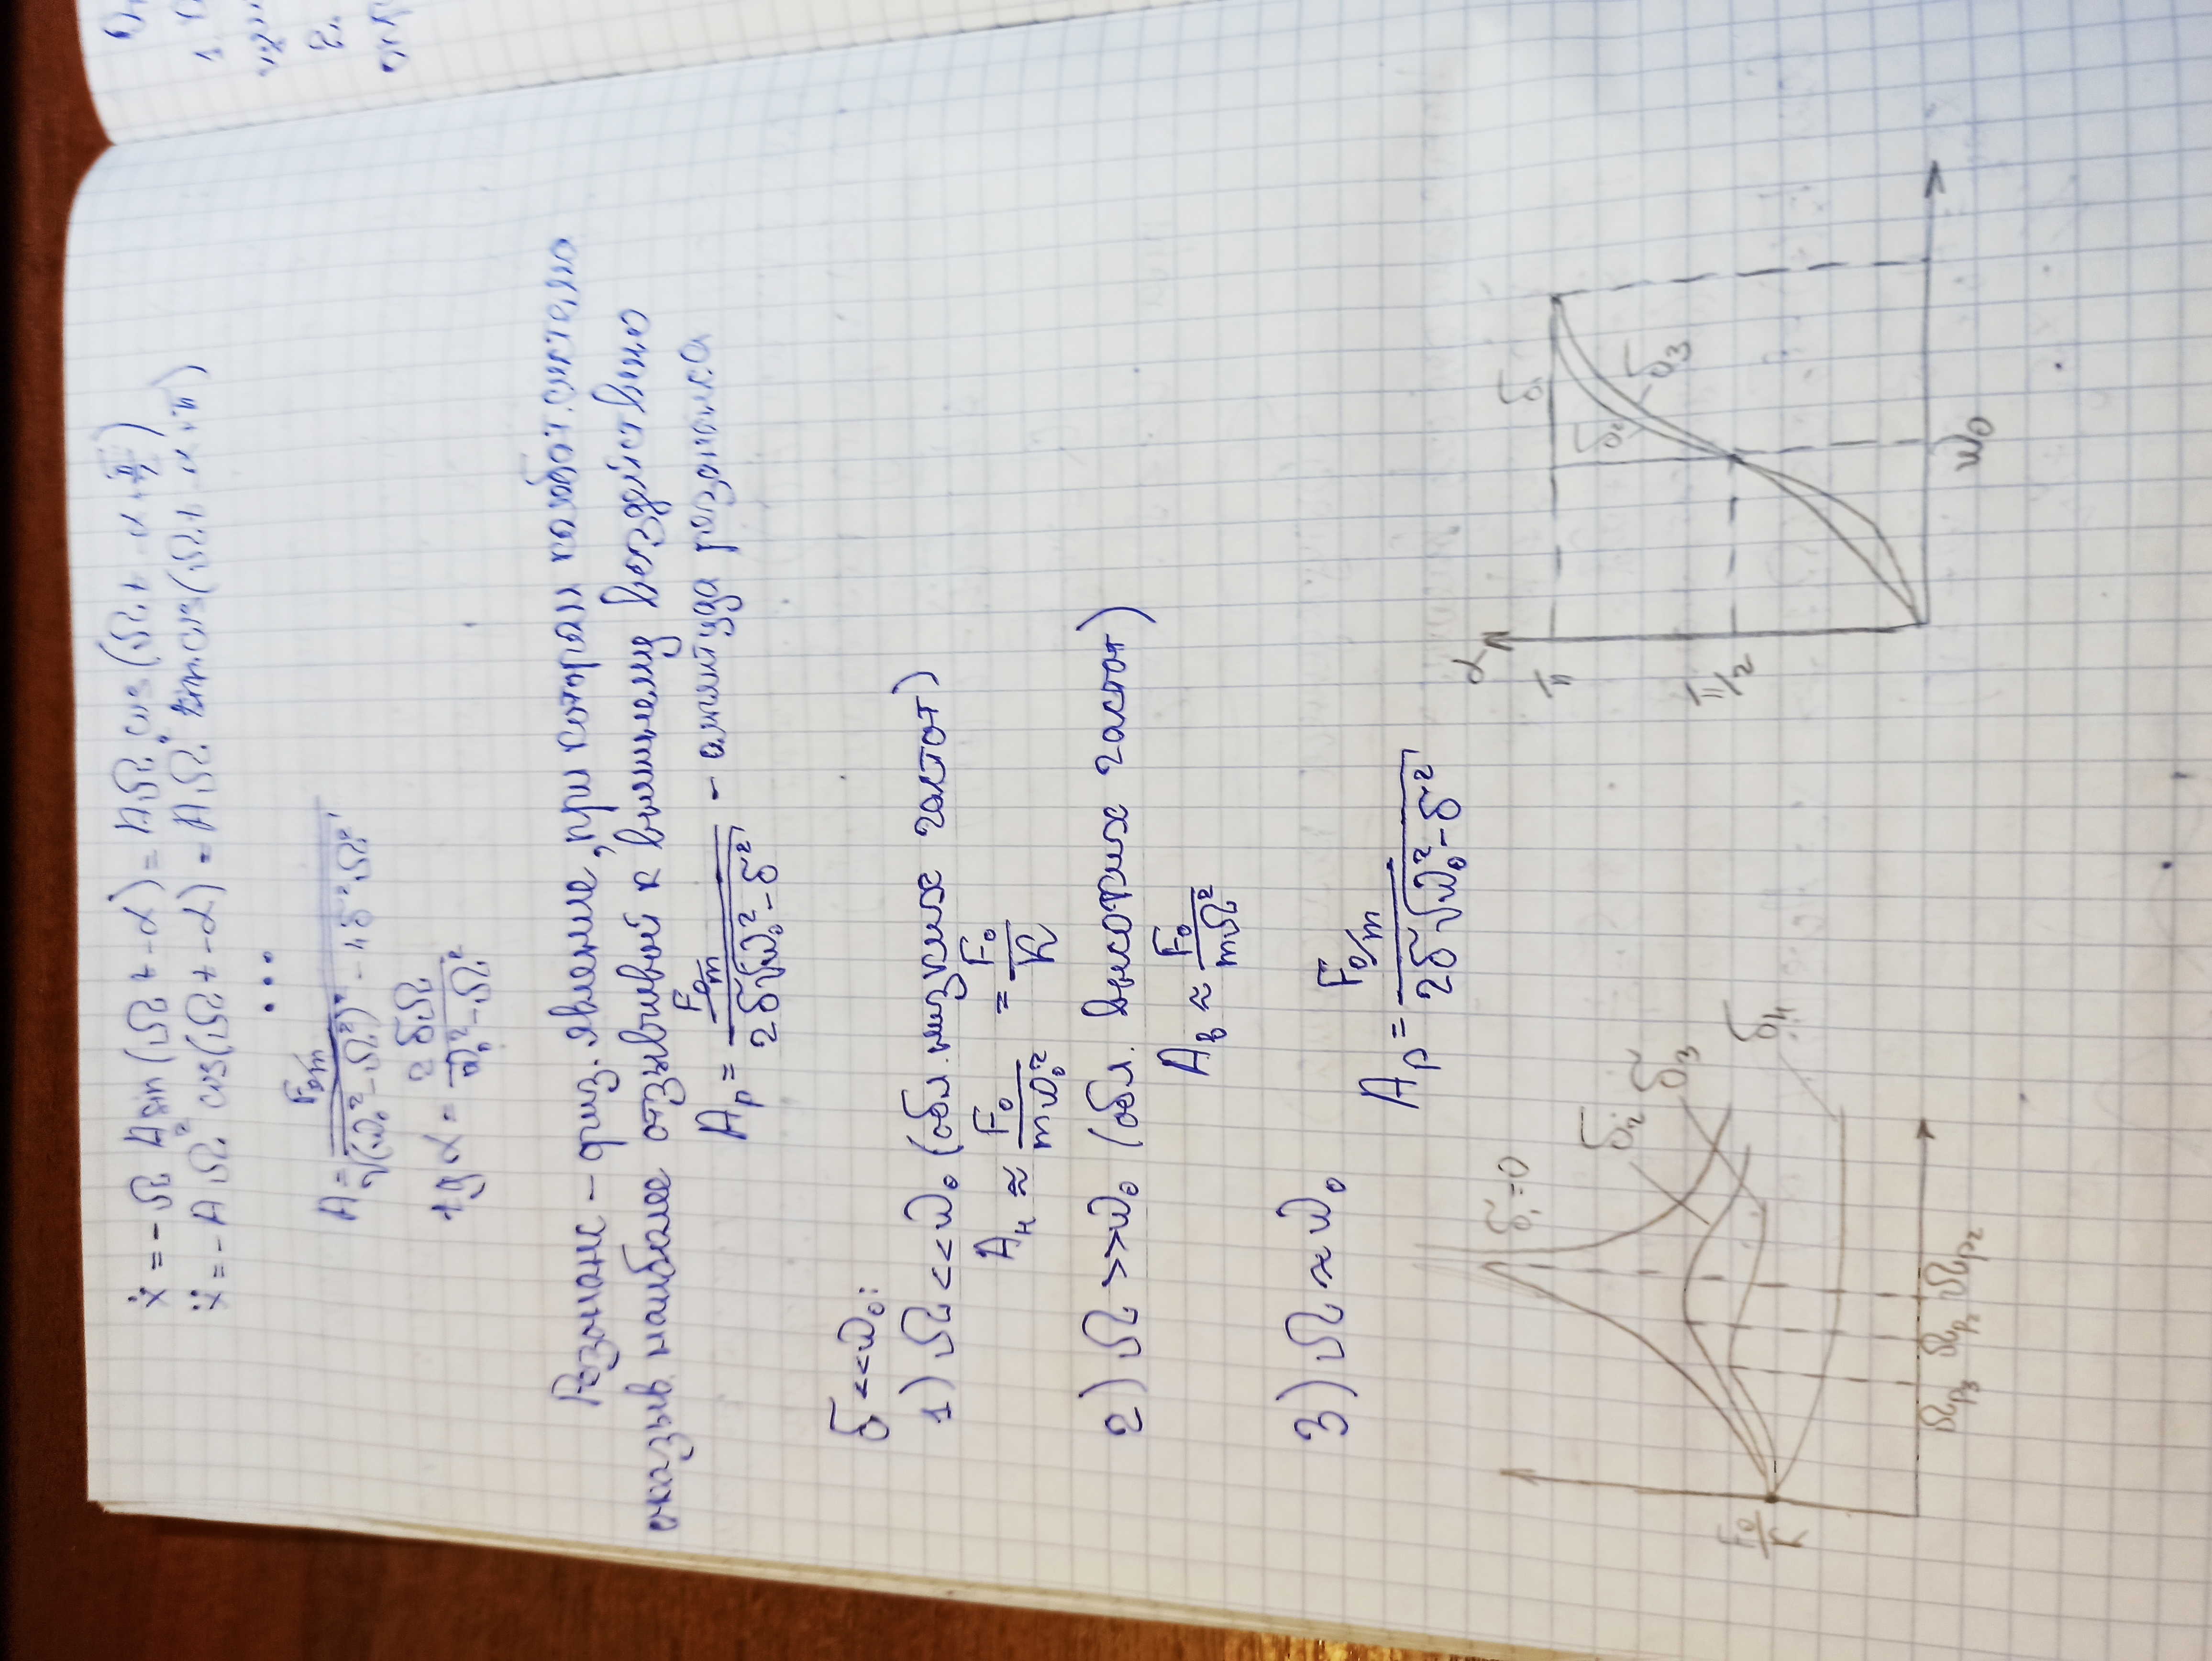 ẍ = -Ω A sin(Ωt - α) = AΩ cos(Ωt - α + π/2)
ẍ = -AΩ² cos(Ωt - α) = AΩ² cos(Ωt - α + π)
...
A = F₀/m / √((ω₀² - Ω²)² - 4δ²Ω²)
tg α = 2δΩ / ω₀² - Ω²
Резонанс - физ. явление, при котором колебат. система
оказыв. наиболее отзывчивой к внешнему воздействию
Aₚ = F₀/m / 2δ√(ω₀² - δ²) - амплитуда резонанса
δ << ω₀:
1) Ω << ω₀ (обл. низких частот)
Aн ≈ F₀ / mω₀² = F₀ / K
2) Ω >> ω₀ (обл. высоких частот)
Aв ≈ F₀ / mΩ²
3) Ω ≈ ω₀
Aₚ = F₀/m / 2δ√(ω₀² - δ²)
δ₁ = 0
δ₂
δ₃
δ₄
F₀/K
Ωp₃ Ωp₂ Ωp₂
α
π
π/2
δ₁
δ₂
δ₃
ω₀
1.
2.